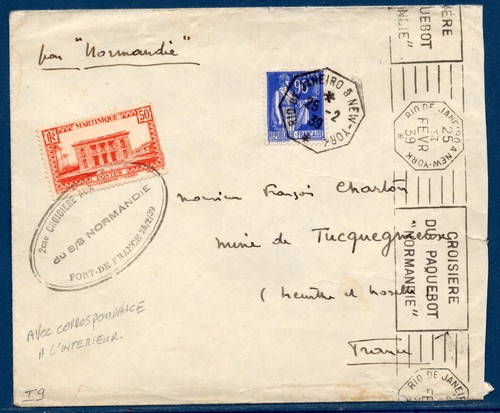 par "Normandie"
MARTINIQUE
1f50
POSTES
90
REPUBLIQUE FRANÇAISE
RIO DE JANEIRO à NEW-YORK
*
25-2
39
2me CROISIERE AUX
du S/S NORMANDIE
FORT-DE-FRANCE 25/2/39
Monsieur François Charlon
Mine de Tucquegnieux
(Meurthe et Moselle
France
AVEC CORRESPONDANCE
A L'INTERIEUR.
T9
PAQUEBOT
RIO DE JANEIRO A NEW-YORK
25
FEVR
39
*
CROISIERE
DU PAQUEBOT
"NORMANDIE"
RIO DE JANEI